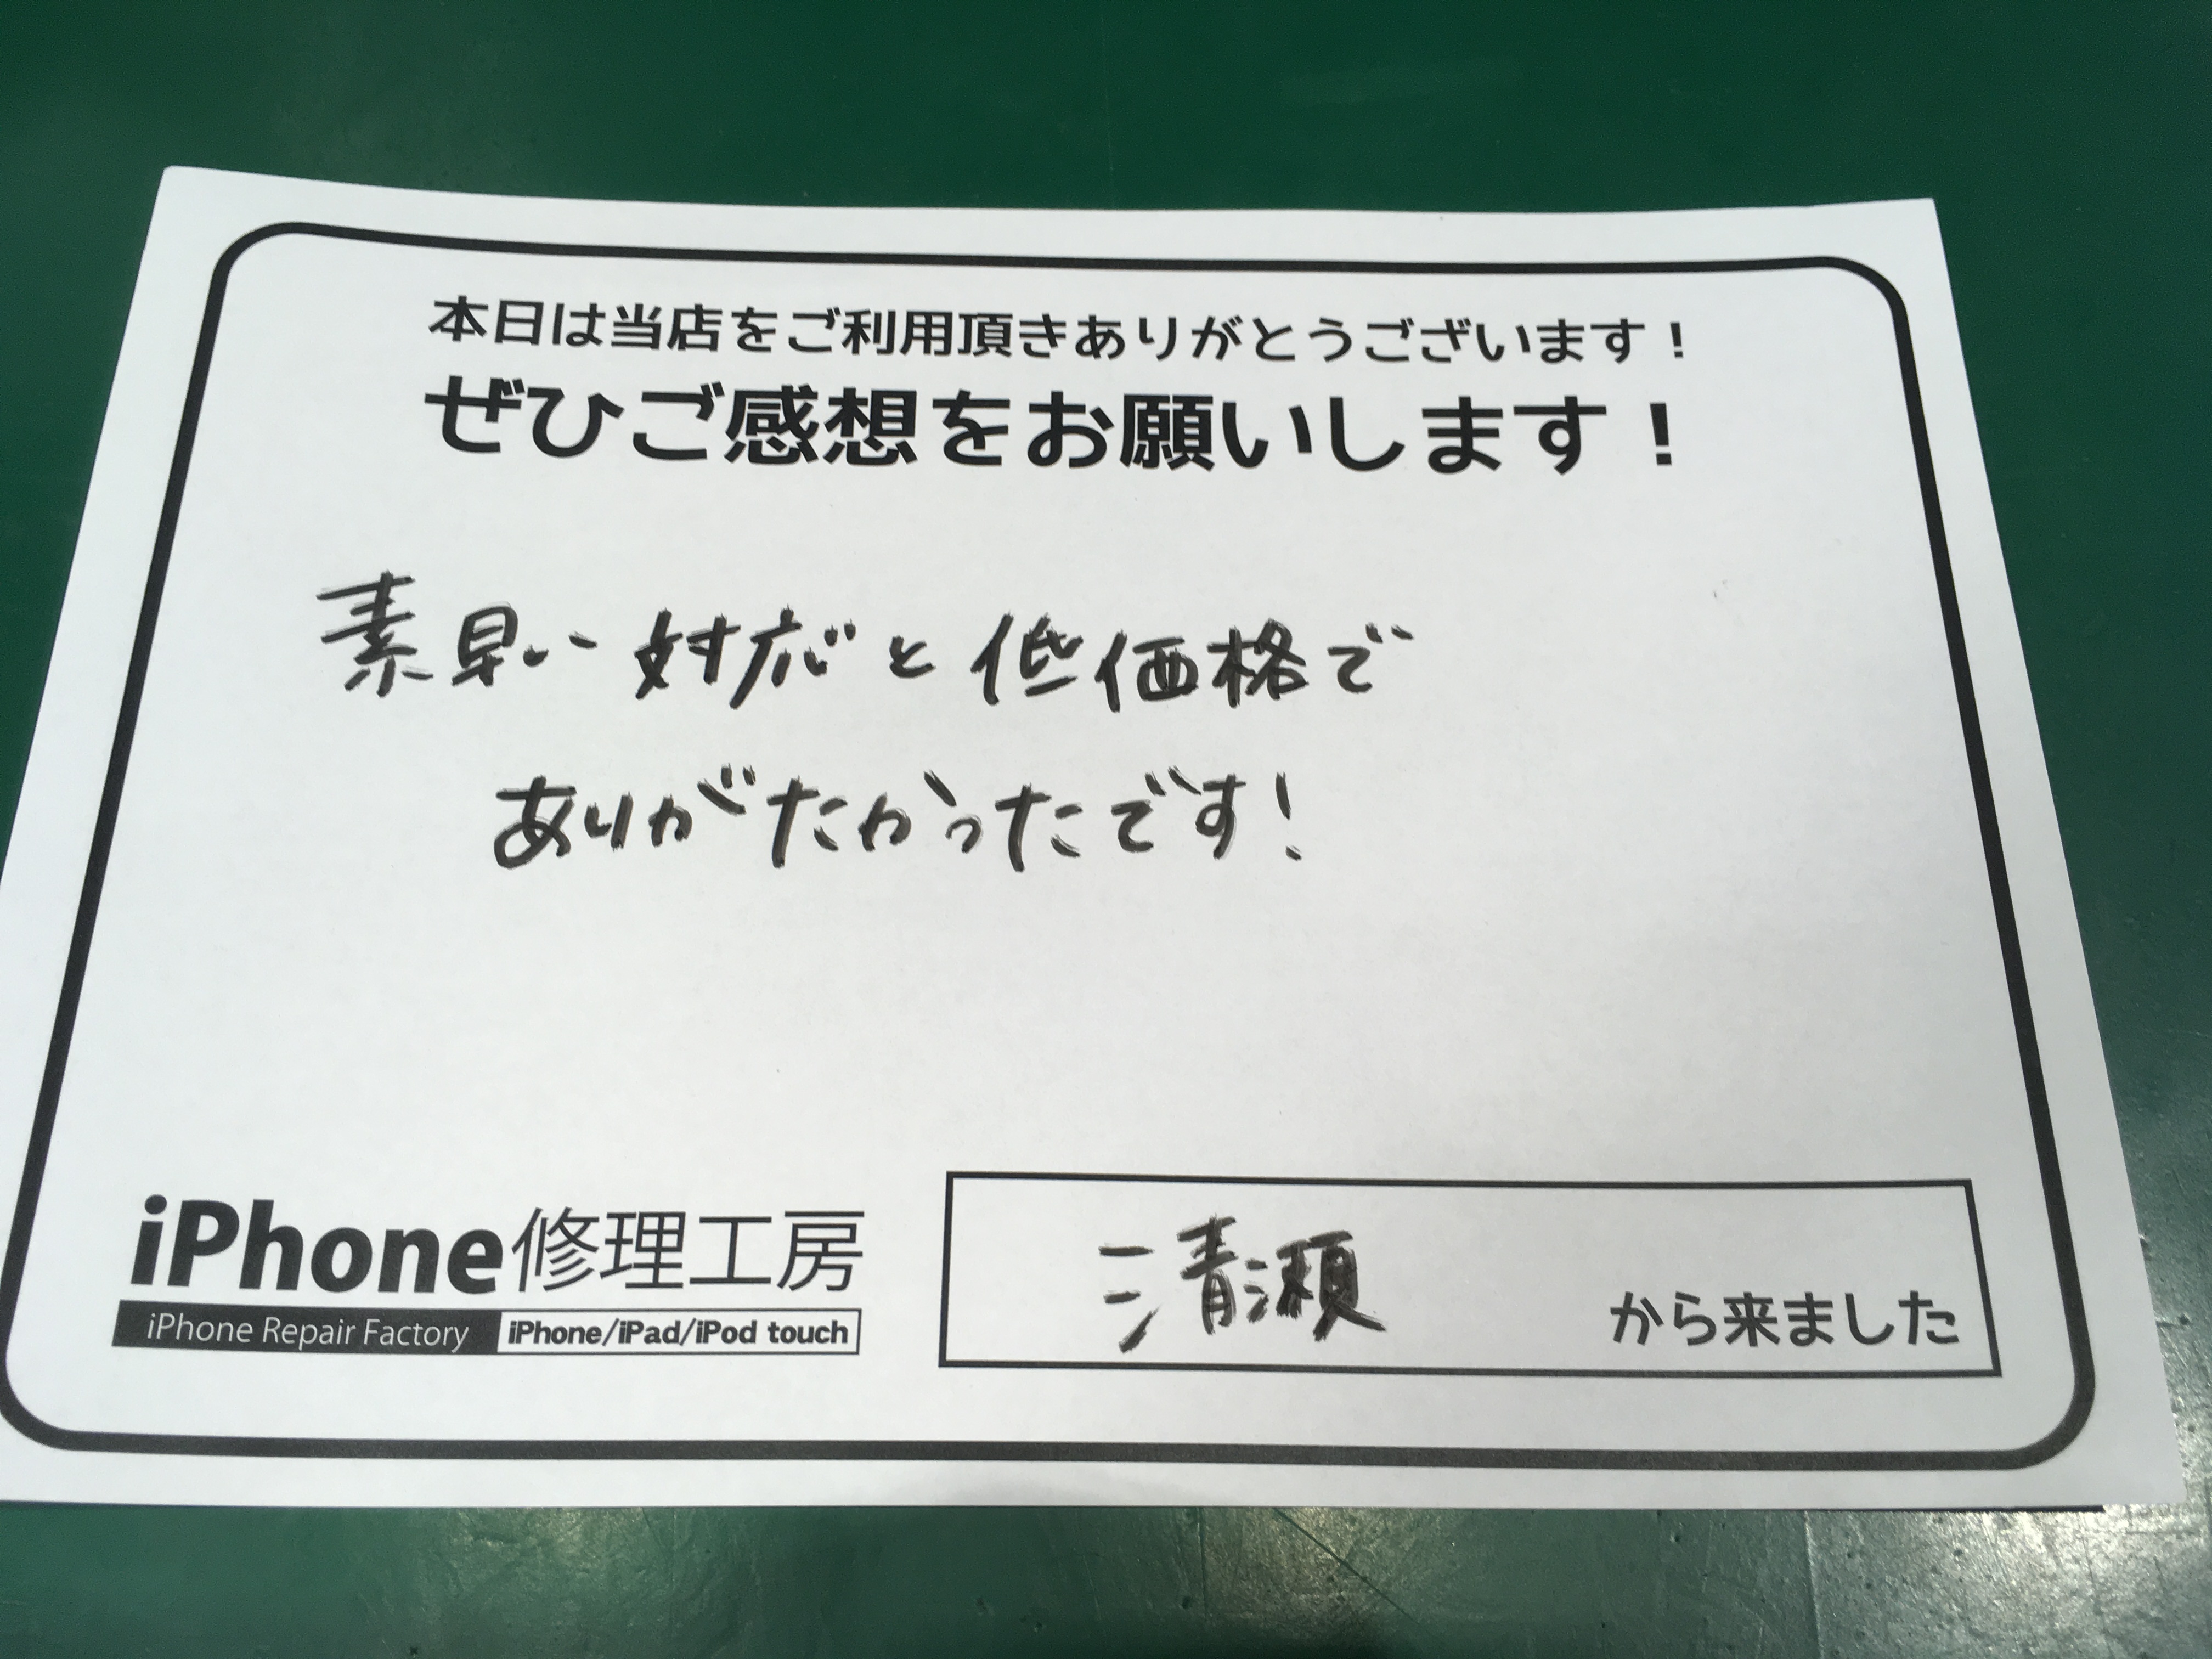 本日は当店をご利用頂きありがとうございます！
ぜひご感想をお願いします！
素早い対応と低価格で
ありがたかったです！
iPhone修理工房
iPhone Repair Factory iPhone/iPad/iPod touch
清瀬 から来ました